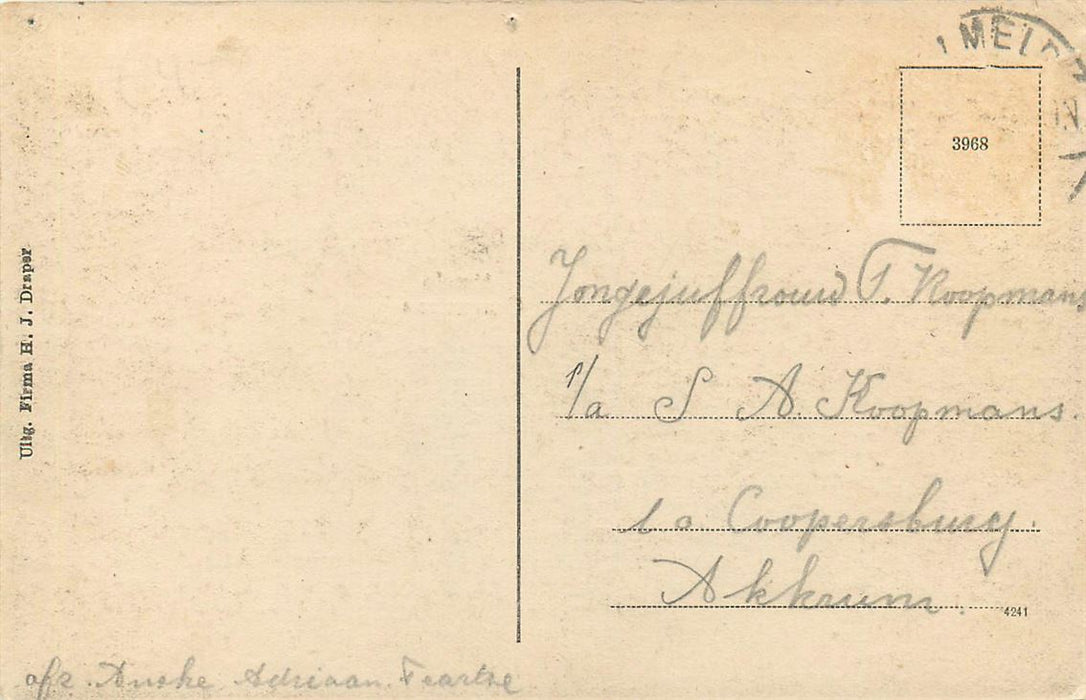 3968
Uitg. Firma H. J. Draper
Jongejuffrouw T. Koopmans
p/a S A. Koopmans.
Coopersburg.
Akkrum.
4241
afz. Anske Adriaan